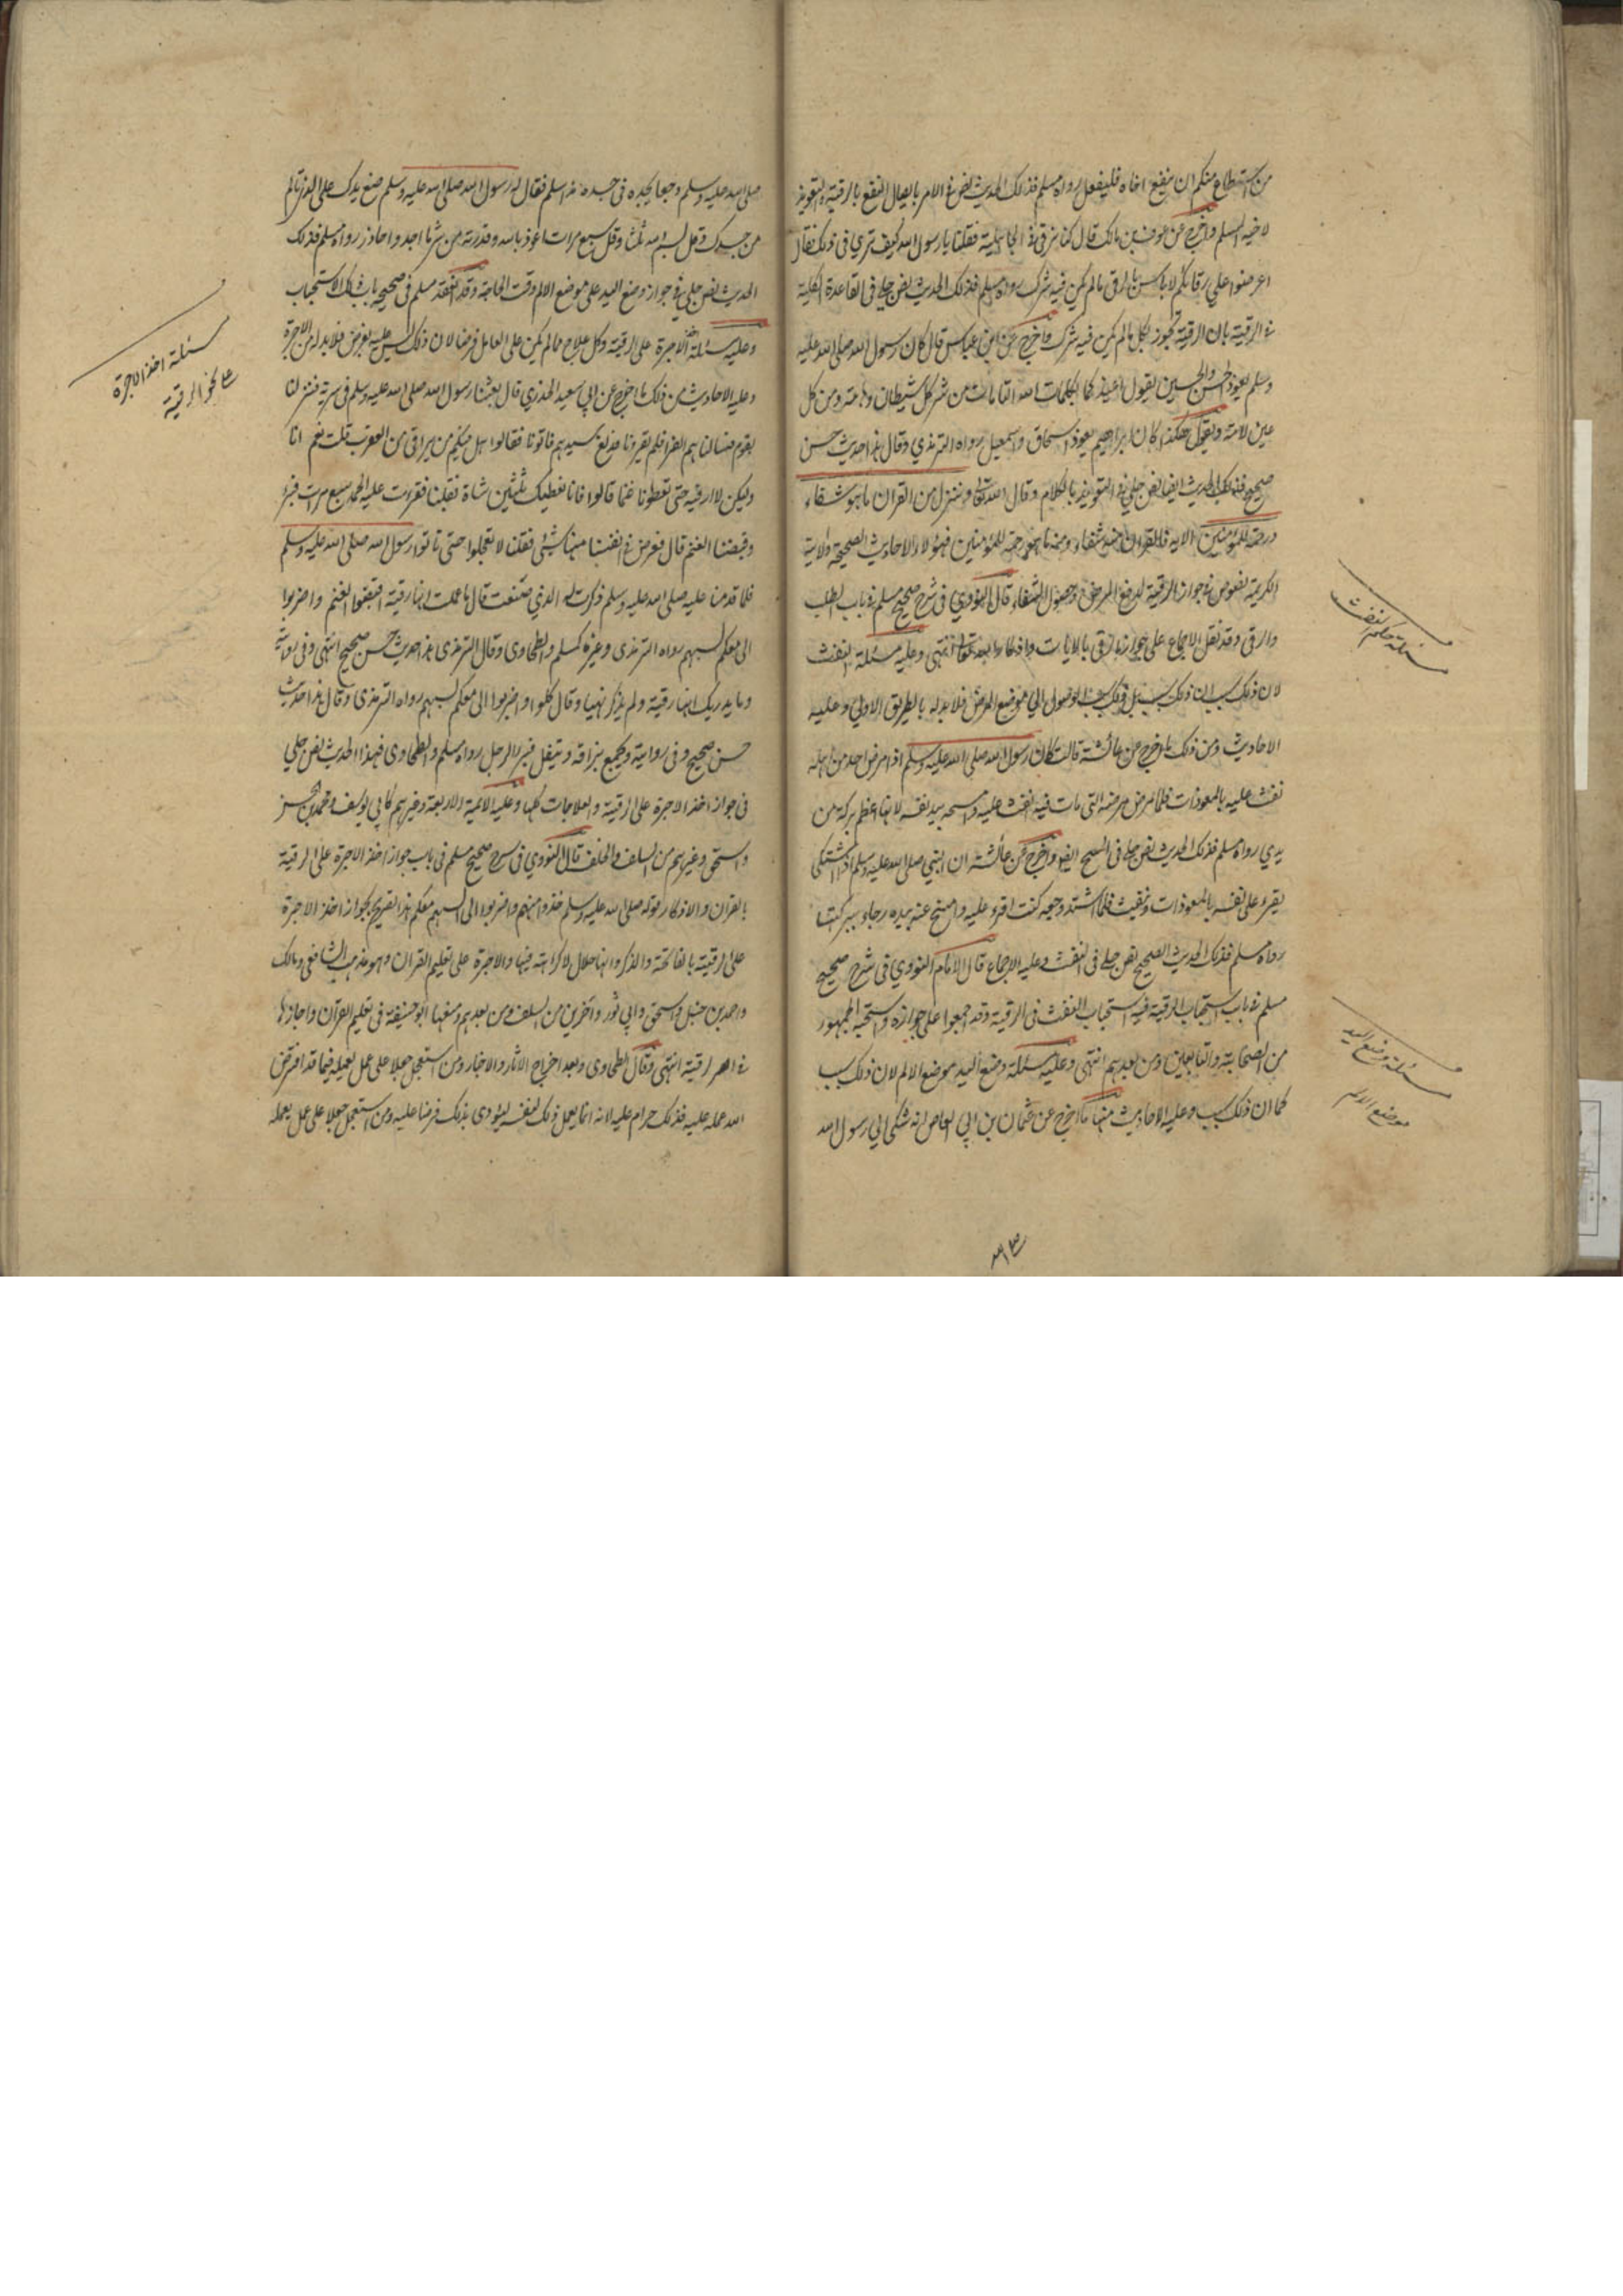 من استطاع منكم ان ينفع اخاه فليفعل رواه مسلم فذلك الحديث نص في الامر بايصال النفع بالرقية والتعويذ
لاخيه المسلم واخرج عن عوف بن مالك قال كنا نرقي في الجاهلية فقلنا يا رسول الله كيف ترى في ذلك فقال
اعرضوا علي رقاكم لا باس بالرقى مالم يكن فيه شرك رواه مسلم فذلك الحديث نص جلي في القاعدة الكلية
في الرقية بان الرقية تجوز بكل مالم يكن فيه شرك واخرج عن ابن عباس قال كان رسول الله صلى الله عليه
وسلم يعوذ الحسن والحسين يقول اعيذكما بكلمات الله التامات من شر كل شيطان وهامة ومن كل
عين لامة ويقول هكذا كان ابراهيم يعوذ اسحاق واسمعيل رواه الترمذي وقال هذا حديث حسن
صحيح فذلك الحديث ايضا نص جلي في التعويذ بالكلام وقال الله تعالى وننزل من القران ما هو شفاء
ورحمة للمؤمنين الاية فالقران شفاء ورحمة للمؤمنين فهؤلاء الاحاديث الصحيحة والاية
الكريمة نصوص في جواز الرقية لدفع المرض وحصول الشفاء قال النووي في شرح صحيح مسلم في باب الطب
والرقى وقد نقل الاجماع على جواز الرقى بالايات واذكار الله تعالى انتهى وعليه مسئلة النفث
لان ذلك سبب الوصول الى موضع المرض فلا بد له بالطريق الاولى وعليه
الاحاديث ومن ذلك ما اخرج عن عائشة قالت كان رسول الله صلى الله عليه وسلم اذا مرض احد من اهله
نفث عليه بالمعوذات فلما مرض مرضه التي مات فيه انفث عليه وامسحه بيد نفسه لانها اعظم بركة من
يدي رواه مسلم فذلك الحديث نص جلي في المسح ايضا واخرج عن عائشة ان النبي صلى الله عليه وسلم اذا اشتكى
يقرء على نفسه بالمعوذات وينفث فلما اشتد وجعه كنت اقرء عليه وامسح عنه بيده رجاء ببركتها
رواه مسلم فذلك الحديث الصحيح نص جلي في النفث وعليه الاجماع قال الامام النووي في شرح صحيح
مسلم في باب استحباب الرقية فيه استحباب النفث في الرقية وقد اجمعوا على جوازه واستحبه الجمهور
من الصحابة والتابعين ومن بعدهم انتهى وعليه مسئلة وضع اليد موضع الالم لان ذلك سببا
كما ان ذلك سبب وعليه الاحاديث منها ما اخرج عن عثمان بن ابي العاص انه شكى الى رسول الله
مسئلة حكم النفث
مسئلة وضع اليد
موضع الالم
صلى الله عليه وسلم وجعا يجده في جسده منذ اسلم فقال له رسول الله صلى الله عليه وسلم ضع يدك على الذي تالم
من جسدك وقل بسم الله ثلثا وقل سبع مرات اعوذ بالله وقدرته من شر ما اجد واحاذر رواه مسلم فذلك
الحديث نص جلي في جواز وضع اليد على موضع الالم وقت الحاجة وقد انعقد مسلم في صحيحه باب تلك الاستحباب
وعليه مسئلة اخذ الاجرة على الرقية وكل علاج مالم يكن على العامل فرضا لان ذلك ليس عليه بفرض فلا بد له من الاجرة
وعليه الاحاديث من ذلك ما اخرج عن ابي سعيد الخدري قال بعثنا رسول الله صلى الله عليه وسلم في سرية فنزلنا
بقوم فسالناهم القرا فلم يقرونا فلدغ سيدهم فاتونا فقالوا هل فيكم من يرقي من العقرب قلت نعم انا
ولكن لا ارقيه حتى تعطونا غنما قالوا فانا نعطيك ثلثين شاة فقبلنا فقرءت عليه الحمد سبع مرات فبرء
وقبضنا الغنم قال فعرض في انفسنا منها شئ فقلنا لا تعجلوا حتى تاتوا رسول الله صلى الله عليه وسلم
فلما قدمنا عليه صلى الله عليه وسلم ذكرت له الذي صنعت قال ما علمت انها رقية اقبضوا الغنم واضربوا
الى معكم بسهم رواه الترمذى وغيره كمسلم والطحاوى وقال الترمذى هذا حديث حسن صحيح انتهى وفى رواية
وما يدريك انها رقية ولم يذكر نهيا وقال كلوا واضربوا الى معكم بسهم رواه الترمذى وقال هذا حديث
حسن صحيح وفى رواية ويجمع بزاقه ويتفل فبرا الرجل رواه مسلم والطحاوى فهذا الحديث نص جلي
فى جواز اخذ الاجرة على الرقية والعلاجات كلها وعليه الائمة الاربعة وغيرهم كابي يوسف ومحمد بن الحسن
واسحق وغيرهم من السلف والخلف قال النووي في شرح صحيح مسلم في باب جواز اخذ الاجرة على الرقية
بالقران والاذكار قوله صلى الله عليه وسلم خذوا منهم واضربوا الى بسهم معكم هذا تصريح بجواز اخذ الاجرة
على الرقية بالفاتحة والذكر وانها حلال لا كراهة فيها والاجرة على تعليم القران وهو مذهب الشافعي ومالك
واحمد بن حنبل واسحق وابي ثور واخرين من السلف ومن بعدهم ومنعها ابو حنيفة في تعليم القرآن واجازها
في الرقية انتهى وقال الطحاوى وبعد اخراج الاثار والاخبار ومن استعجل جعلا على عمل يعمله فيما قد افترض
الله عمله عليه فذلك حرام عليه لانه انما يعمل ذلك لنفسه ليؤدى بذلك فرضا عليه ومن استعجل جعلا على عمل يعمله
مسئلة اخذ الاجرة
على الرقية